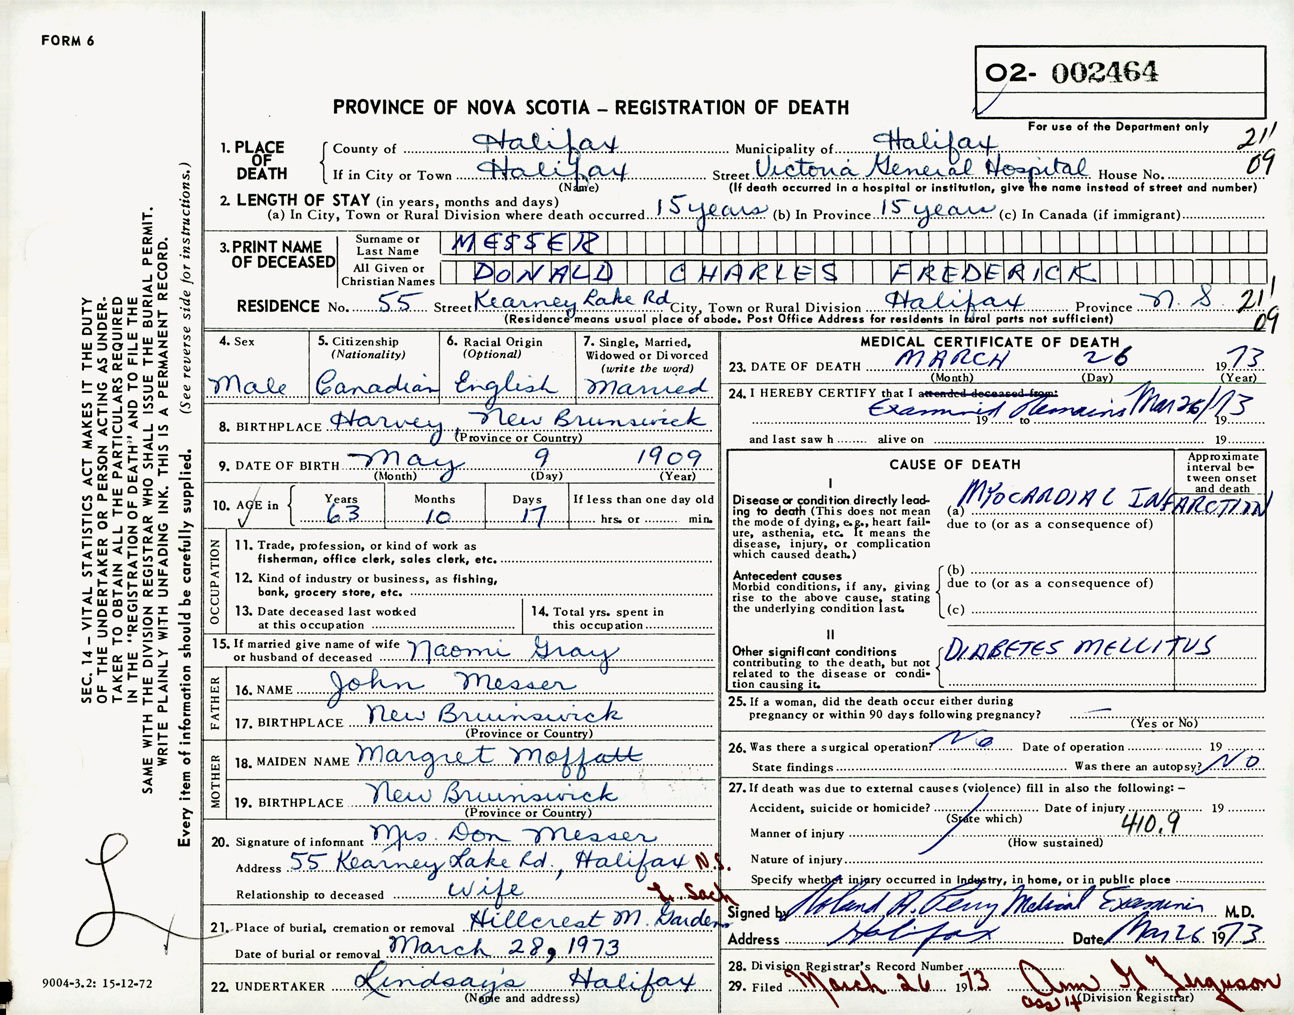 FORM 6
O2- 002464
PROVINCE OF NOVA SCOTIA – REGISTRATION OF DEATH
For use of the Department only
21'
09
1. PLACE OF DEATH
County of Halifax Municipality of Halifax
If in City or Town Halifax Street Victoria General Hospital House No.
(Name) (If death occurred in a hospital or institution, give the name instead of street and number)
2. LENGTH OF STAY (in years, months and days)
(a) In City, Town or Rural Division where death occurred 15 years (b) In Province 15 years (c) In Canada (if immigrant)
3. PRINT NAME OF DECEASED
Surname or Last Name MESSER
All Given or Christian Names DONALD CHARLES FREDERICK
RESIDENCE No. 55 Street Kearney Lake Rd City, Town or Rural Division Halifax Province N.S. 21'
09
(Residence means usual place of abode. Post Office Address for residents in rural parts not sufficient)
4. Sex
Male
5. Citizenship
(Nationality)
Canadian
6. Racial Origin
(Optional)
English
7. Single, Married,
Widowed or Divorced
(write the word)
Married
8. BIRTHPLACE Harvey, New Brunswick
(Province or Country)
9. DATE OF BIRTH May 9 1909
(Month) (Day) (Year)
10. AGE in
Years Months Days If less than one day old
63 10 17 hrs. or min.
OCCUPATION
11. Trade, profession, or kind of work as
fisherman, office clerk, sales clerk, etc.
12. Kind of industry or business, as fishing,
bank, grocery store, etc.
13. Date deceased last worked
at this occupation
14. Total yrs. spent in
this occupation
15. If married give name of wife
or husband of deceased Naomi Gray
FATHER
16. NAME John Messer
17. BIRTHPLACE New Brunswick
(Province or Country)
MOTHER
18. MAIDEN NAME Margret Moffatt
19. BIRTHPLACE New Brunswick
(Province or Country)
20. Signature of informant Mrs. Don Messer
Address 55 Kearney Lake Rd., Halifax N.S.
Relationship to deceased wife
21. Place of burial, cremation or removal Hillcrest M. Gardens
L. Sack
Date of burial or removal March 28, 1973
22. UNDERTAKER Lindsay's Halifax
(Name and address)
MEDICAL CERTIFICATE OF DEATH
23. DATE OF DEATH MARCH 26 1973
(Month) (Day) (Year)
24. I HEREBY CERTIFY that I attended deceased from:
Examined Remains Mar 26/73
19 to 19
and last saw h alive on 19
CAUSE OF DEATH
Approximate
interval be-
tween onset
and death
I
Disease or condition directly lead-
ing to death (This does not mean
the mode of dying, e.g., heart fail-
ure, asthenia, etc. It means the
disease, injury, or complication
which caused death.)
(a) MYOCARDIAL INFARCTION
due to (or as a consequence of)
Antecedent causes
Morbid conditions, if any, giving
rise to the above cause, stating
the underlying condition last.
(b)
due to (or as a consequence of)
(c)
II
Other significant conditions
contributing to the death, but not
related to the disease or condi-
tion causing it.
DIABETES MELLITUS
25. If a woman, did the death occur either during
pregnancy or within 90 days following pregnancy? —
(Yes or No)
26. Was there a surgical operation? No Date of operation 19
State findings Was there an autopsy? No
27. If death was due to external causes (violence) fill in also the following: –
Accident, suicide or homicide? Date of injury 19
(State which)
410.9
Manner of injury
(How sustained)
Nature of injury
Specify whether injury occurred in Industry, in home, or in public place
Signed by Roland A. Perry Medical Examiner M.D.
Address Halifax Date Mar 26 1973
28. Division Registrar's Record Number
29. Filed March 26 1973 Ann G Ferguson
(Division Registrar)
SEC. 14 – VITAL STATISTICS ACT MAKES IT THE DUTY
OF THE UNDERTAKER OR PERSON ACTING AS UNDER-
TAKER TO OBTAIN ALL THE PARTICULARS REQUIRED
IN THE "REGISTRATION OF DEATH" AND TO FILE THE
SAME WITH THE DIVISION REGISTRAR WHO SHALL ISSUE THE BURIAL PERMIT.
WRITE PLAINLY WITH UNFADING INK. THIS IS A PERMANENT RECORD.
Every item of information should be carefully supplied. (See reverse side for instructions.)
9004-3.2: 15-12-72